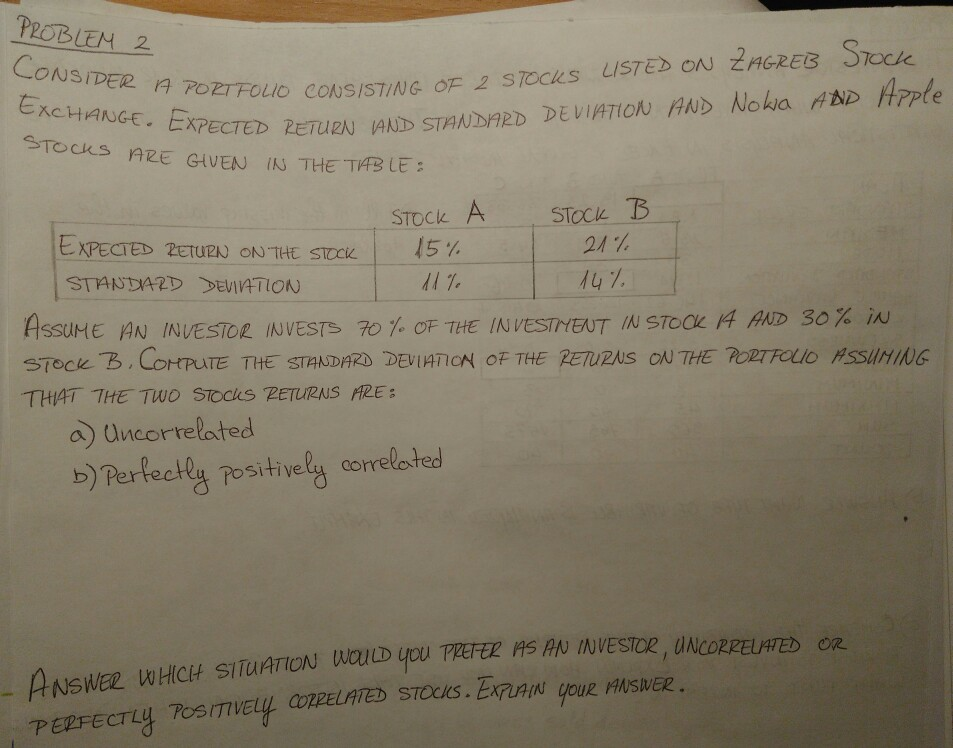 PROBLEM 2
CONSIDER A PORTFOLIO CONSISTING OF 2 STOCKS LISTED ON ZAGREB STOCK
EXCHANGE. EXPECTED RETURN AND STANDARD DEVIATION AND Nokia AND Apple
STOCKS ARE GIVEN IN THE TABLE:
STOCK A STOCK B
EXPECTED RETURN ON THE STOCK 15% 21%
STANDARD DEVIATION 11% 14%
ASSUME AN INVESTOR INVESTS 70% OF THE INVESTMENT IN STOCK A AND 30% IN
STOCK B. COMPUTE THE STANDARD DEVIATION OF THE RETURNS ON THE PORTFOLIO ASSUMING
THAT THE TWO STOCKS RETURNS ARE:
a) Uncorrelated
b) Perfectly positively correlated
ANSWER WHICH SITUATION WOULD YOU PREFER AS AN INVESTOR, UNCORRELATED OR
PERFECTLY POSITIVELY CORRELATED STOCKS. EXPLAIN YOUR ANSWER.